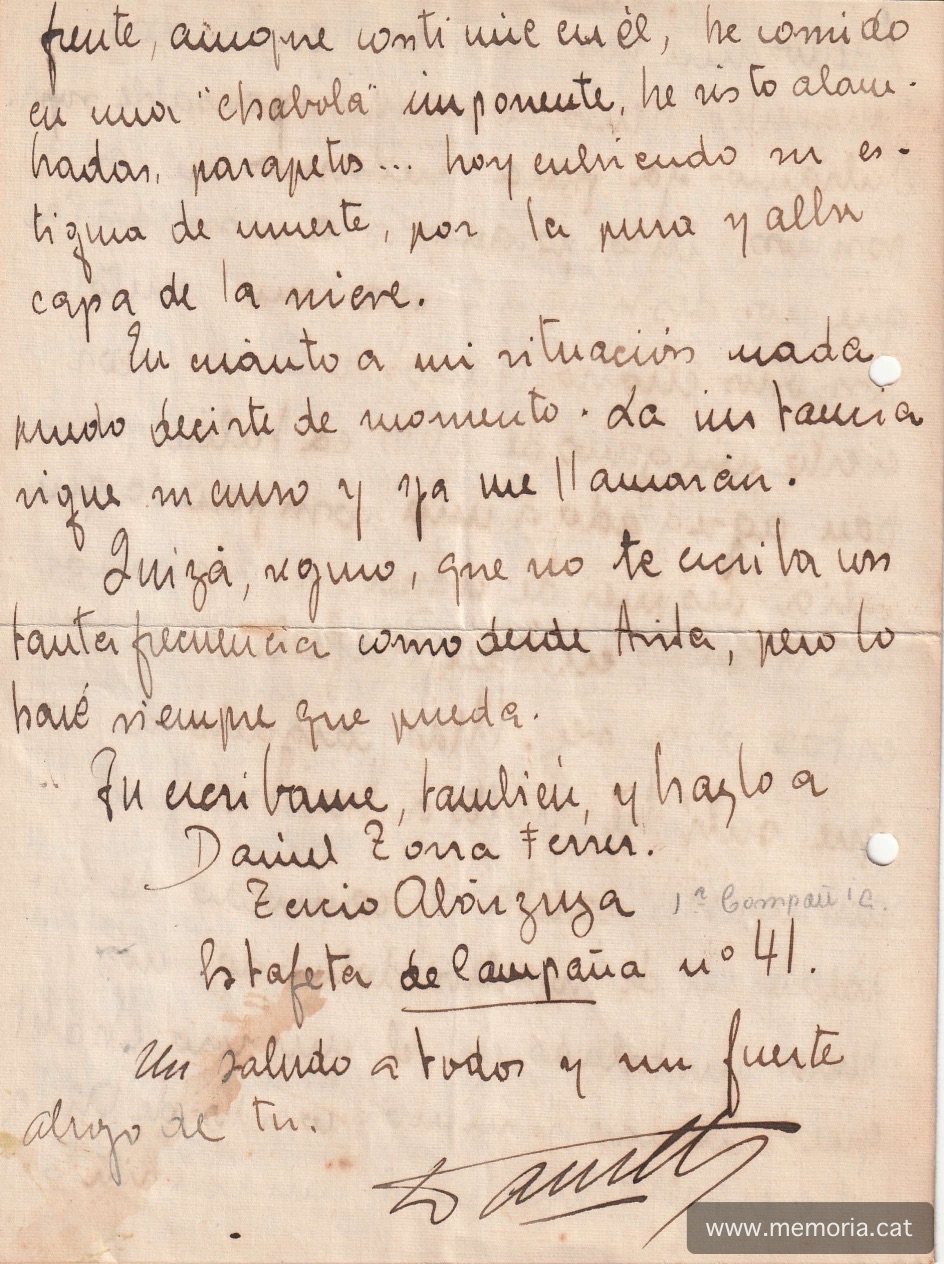 frente, aunque continue en él, he comido
en una "chabola" imponente, he visto alam-
bradas, parapetos... hoy cubriendo su es-
tigma de muerte, por la pura y alba
capa de la nieve.
En cuánto a mi situación nada
puedo decirte de momento. La instancia
sigue su curso y ya me llamarán.
Quizá, seguro, que no te escriba con
tanta frecuencia como desde Ávila, pero lo
haré siempre que pueda.
Tu escribame, también, y hazlo a
Daniel Zorra Ferrer.
Tercio Abárzuza 1ª Compañia.
Estafeta de Campaña nº 41.
Un saludo a todos y un fuerte
abrazo de tu.
www.memoria.cat